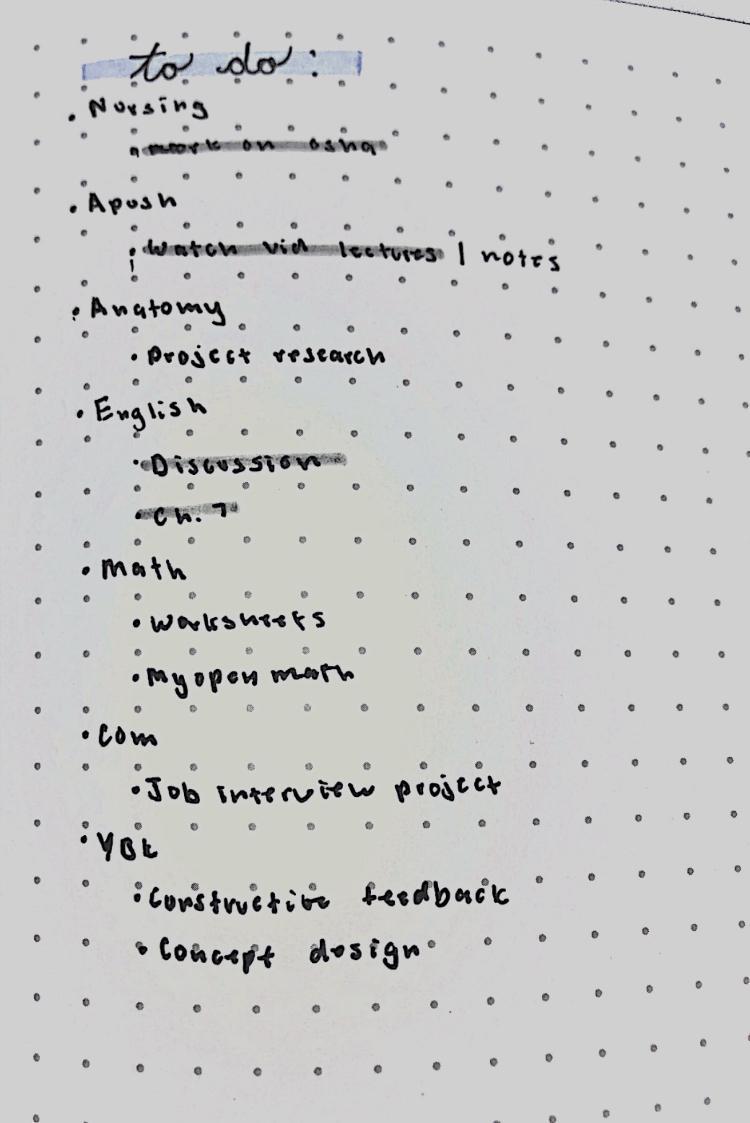 to do:
• Nursing
• work on osha
• Apush
• Watch vid lectures | notes
• Anatomy
• Project research
• English
• Discussion
• Ch. 7
• Math
• Worksheets
• My open math
• Com
• Job interview project
• YBK
• Constructive feedback
• Concept design